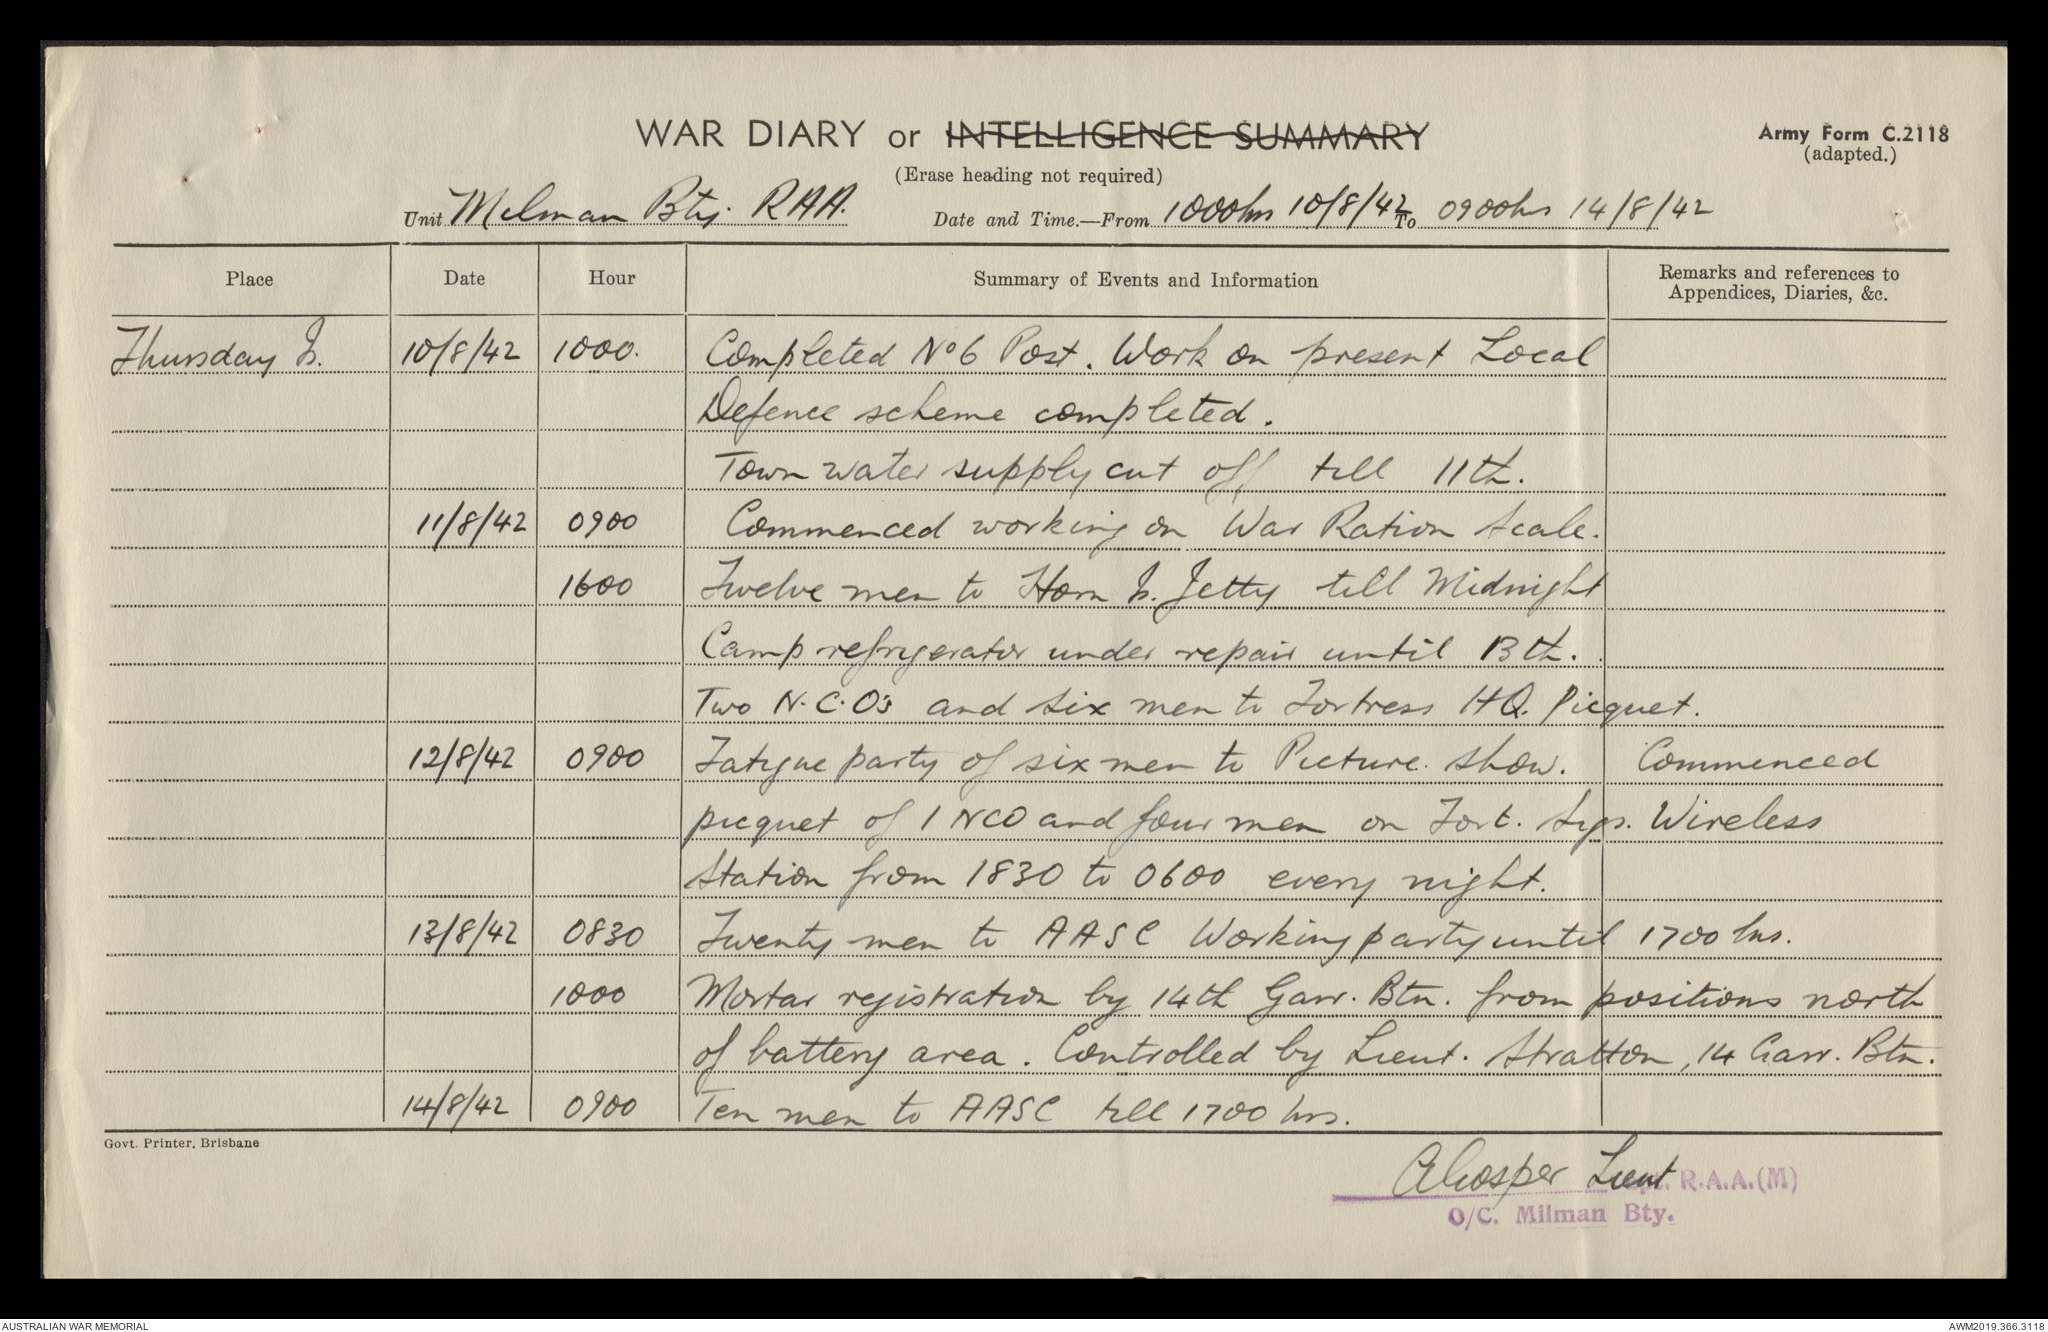 WAR DIARY or INTELLIGENCE SUMMARY
Army Form C.2118
(adapted.)
(Erase heading not required)
Unit Milman Bty. RAA. Date and Time.—From 1000hrs 10/8/42 To 0900hrs 14/8/42
Place Date Hour Summary of Events and Information Remarks and references to
Appendices, Diaries, &c.
Thursday Is. 10/8/42 1000. Completed No 6 Post. Work on present Local
Defence scheme completed.
Town water supply cut off till 11th.
11/8/42 0900 Commenced working on War Ration Scale.
1600 Twelve men to Horn Is. Jetty till Midnight
Camp refrigerator under repair until 13th.
Two N.C.O's and six men to Fortress HQ. Picquet.
12/8/42 0900 Fatigue party of six men to Picture show. Commenced
picquet of 1 NCO and four men on Fort. Sigs. Wireless
Station from 1830 to 0600 every night.
13/8/42 0830 Twenty men to AASC Working party until 1700 hrs.
1000 Mortar registration by 14th Garr. Btn. from positions north
of battery area. Controlled by Lieut. Stratton, 14 Garr. Btn.
14/8/42 0900 Ten men to AASC till 1700 hrs.
Govt. Printer, Brisbane
Lieut R.A.A.(M)
O/C. Milman Bty.
AUSTRALIAN WAR MEMORIAL
AWM2019.366.3118